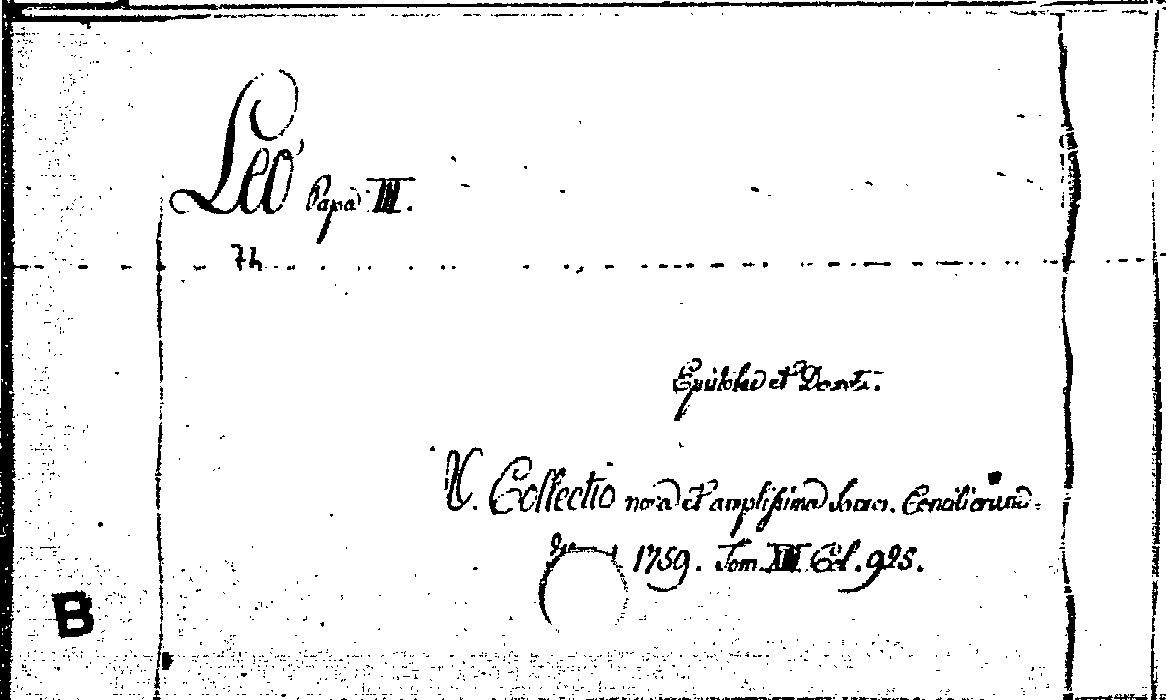 Leo Papa III.
7h
Epistolae et
V. Collectio nova et amplissima Sacr. Conciliorum.
1759. Tom. Col. 925.
B